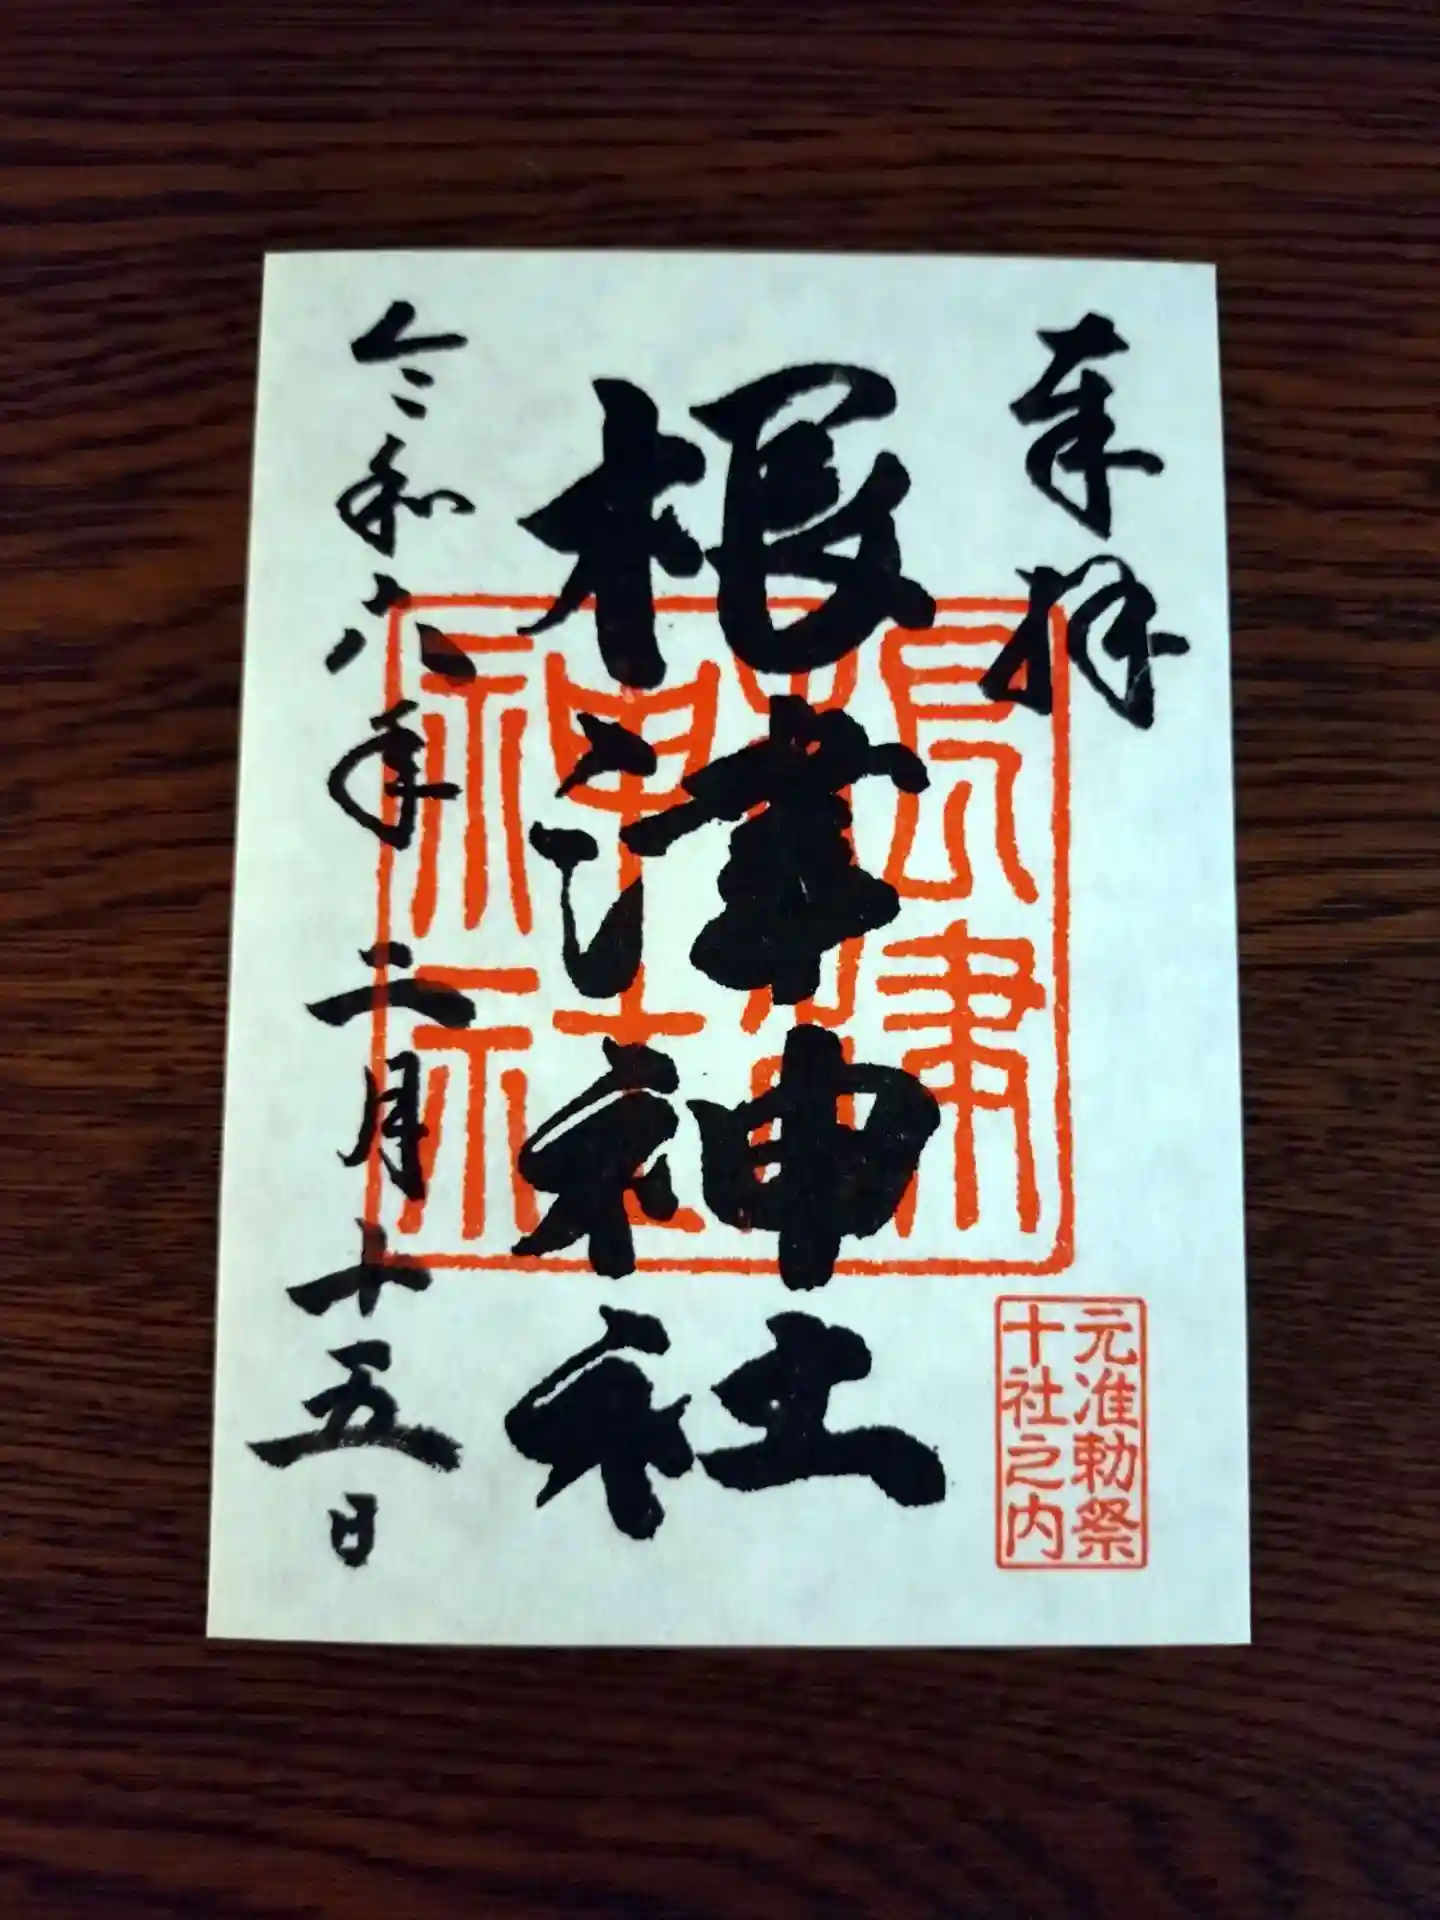 奉拝
根津神社
根津神社
元准勅祭
十社之内
令和六年二月十五日